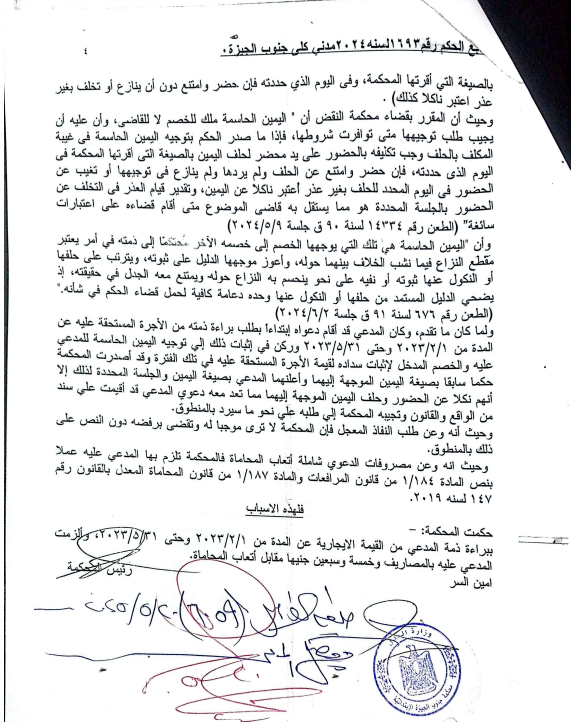 ـع الحكم رقم ١٦٩٣ لسنه ٢٠٢٤ مدني كلي جنوب الجيزة .
٤
بالصيغة التي أقرتها المحكمة، وفى اليوم الذي حددته فإن حضر وامتنع دون أن ينازع أو تخلف بغير
عذر اعتبر ناكلا كذلك) .
وحيث أن المقرر بقضاء محكمة النقض أن " اليمين الحاسمة ملك للخصم لا للقاضي، وأن عليه أن
يجيب طلب توجيهها متى توافرت شروطها، فإذا ما صدر الحكم بتوجيه اليمين الحاسمة في غيبة
المكلف بالحلف وجب تكليفه بالحضور على يد محضر لحلف اليمين بالصيغة التى أقرتها المحكمة فى
اليوم الذى حددته، فإن حضر وامتنع عن الحلف ولم يردها ولم ينازع فى توجيهها أو تغيب عن
الحضور في اليوم المحدد للحلف بغير عذر أعتبر ناكلا عن اليمين، وتقدير قيام العذر فى التخلف عن
الحضور بالجلسة المحددة هو مما يستقل به قاضى الموضوع متى أقام قضاءه على اعتبارات
سائغة" (الطعن رقم ١٤٣٣٤ لسنة ٩٠ ق جلسة ٢٠٢٤/٥/٩)
وأن "اليمين الحاسمة هي تلك التي يوجهها الخصم إلى خصمه الأخر محتكمًا إلى ذمته في أمر يعتبر
مقطع النزاع فيما نشب الخلاف بينهما حوله، وأعوز موجهها الدليل على ثبوته، ويترتب على حلفها
أو النكول عنها ثبوته أو نفيه على نحو ينحسم به النزاع حوله ويمتنع معه الجدل في حقيقته، إذ
يضحي الدليل المستمد من حلفها أو النكول عنها وحده دعامة كافية لحمل قضاء الحكم في شأنه."
(الطعن رقم ٦٧٦ لسنة ٩١ ق جلسة ٢٠٢٤/٦/٢)
ولما كان ما تقدم، وكان المدعي قد أقام دعواه إبتداءاً بطلب براءة ذمته من الأجرة المستحقة عليه عن
المدة من ٢٠٢٣/٢/١ وحتى ٢٠٢٣/٥/٣١ وركن في إثبات ذلك إلي توجيه اليمين الحاسمة للمدعي
عليه والخصم المدخل لإثبات سداده لقيمة الأجرة المستحقة عليه في تلك الفترة وقد أصدرت المحكمة
حكما سابقا بصيغة اليمين الموجهة إليهما وأعلنهما المدعي بصيغة اليمين والجلسة المحددة لذلك إلا
أنهم نكلا عن الحضور وحلف اليمين الموجهة إليهما مما تعد معه دعوي المدعي قد أقيمت علي سند
من الواقع والقانون وتجيبه المحكمة إلي طلبه علي نحو ما سيرد بالمنطوق.
وحيث أنه وعن طلب النفاذ المعجل فإن المحكمة لا ترى موجبا له وتقضى برفضه دون النص على
ذلك بالمنطوق.
وحيث انه وعن مصروفات الدعوي شاملة أتعاب المحاماة فالمحكمة تلزم بها المدعي عليه عملا
بنص المادة ١/١٨٤ من قانون المرافعات والمادة ١/١٨٧ من قانون المحاماة المعدل بالقانون رقم
١٤٧ لسنه ٢٠١٩.
فلهذه الاسباب
حكمت المحكمة: –
ببراءة ذمة المدعي من القيمة الايجارية عن المدة من ٢٠٢٣/٢/١ وحتى ٢٠٢٣/٥/٣١، وألزمت
المدعي عليه بالمصاريف وخمسة وسبعين جنيها مقابل أتعاب المحاماة.
امين السر
رئيس المحكمة